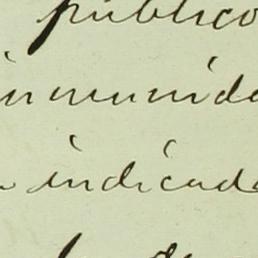 público
inmunida
indicada